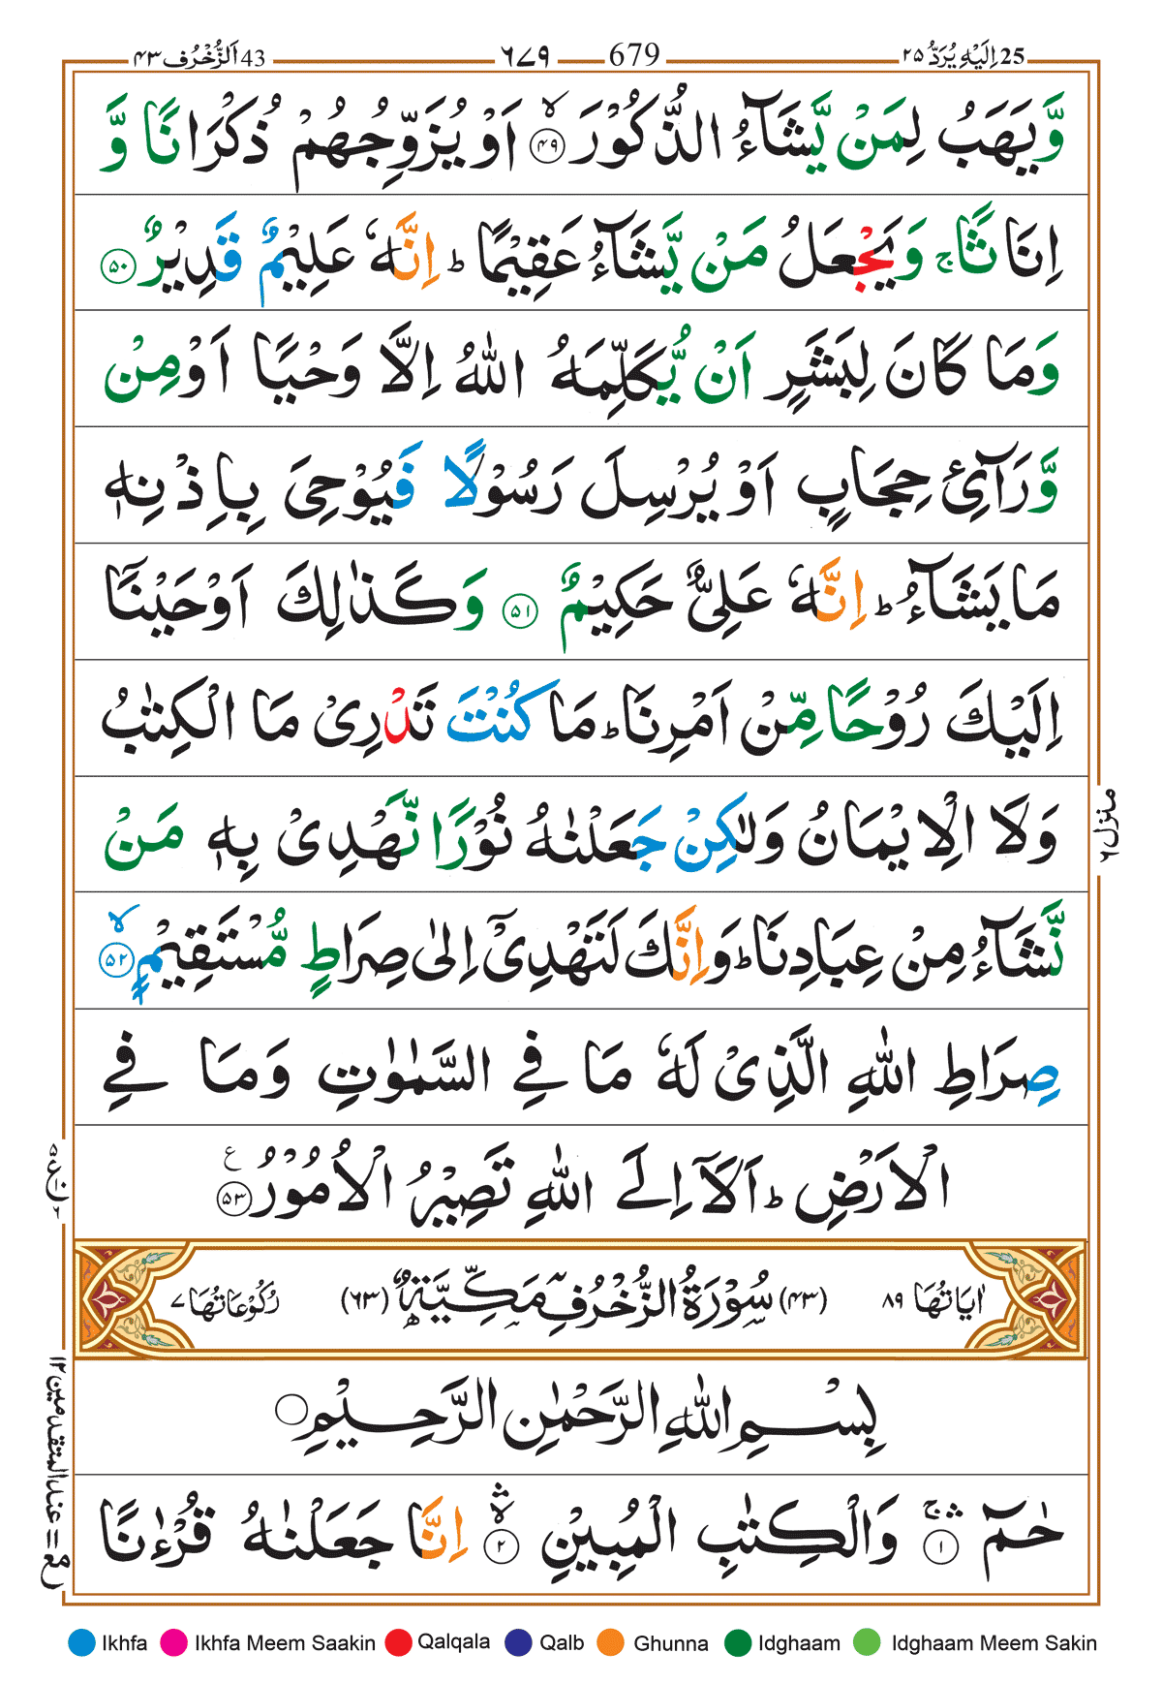 25 اِلَيْهِ يُرَدُّ ۲۵ 679 ٦٧٩ 43 اَلزُّخْرُف ۴۳
وَّيَهَبُ لِمَنْ يَّشَآءُ الذُّكُوْرَ ۙ﴿۴۹﴾ اَوْ يُزَوِّجُهُمْ ذُكْرَانًا وَّ
اِنَاثًا ۚ وَيَجْعَلُ مَنْ يَّشَآءُ عَقِيْمًا ؕ اِنَّهٗ عَلِيْمٌ قَدِيْرٌ ﴿۵۰﴾
وَمَا كَانَ لِبَشَرٍ اَنْ يُّكَلِّمَهُ اللّٰهُ اِلَّا وَحْيًا اَوْ مِنْ
وَّرَآئِ حِجَابٍ اَوْ يُرْسِلَ رَسُوْلًا فَيُوْحِيَ بِاِذْنِهٖ
مَا يَشَآءُ ؕ اِنَّهٗ عَلِيٌّ حَكِيْمٌ ﴿۵۱﴾ وَكَذٰلِكَ اَوْحَيْنَآ
اِلَيْكَ رُوْحًا مِّنْ اَمْرِنَا ؕ مَا كُنْتَ تَدْرِيْ مَا الْكِتٰبُ
وَلَا الْاِيْمَانُ وَلٰكِنْ جَعَلْنٰهُ نُوْرًا نَّهْدِيْ بِهٖ مَنْ
نَّشَآءُ مِنْ عِبَادِنَا ؕ وَاِنَّكَ لَتَهْدِيْٓ اِلٰى صِرَاطٍ مُّسْتَقِيْمٍ ۙ﴿۵۲﴾
صِرَاطِ اللّٰهِ الَّذِيْ لَهٗ مَا فِي السَّمٰوٰتِ وَمَا فِي
الْاَرْضِ ؕ اَلَآ اِلَى اللّٰهِ تَصِيْرُ الْاُمُوْرُ ﴿۵۳﴾ ع
اٰيَاتُهَا ۸۹ (۴۳) سُوْرَةُ الزُّخْرُفِ مَكِّيَّةٌ (۶۳) رُكُوْعَاتُهَا ۷
بِسْمِ اللّٰهِ الرَّحْمٰنِ الرَّحِيْمِ
حٰمٓ ۚۛ﴿۱﴾ وَالْكِتٰبِ الْمُبِيْنِ ۙۛ﴿۲﴾ اِنَّا جَعَلْنٰهُ قُرْءٰنًا
منزل ۶
عند المتقدمين ۱۲
Ikhfa Ikhfa Meem Saakin Qalqala Qalb Ghunna Idghaam Idghaam Meem Sakin